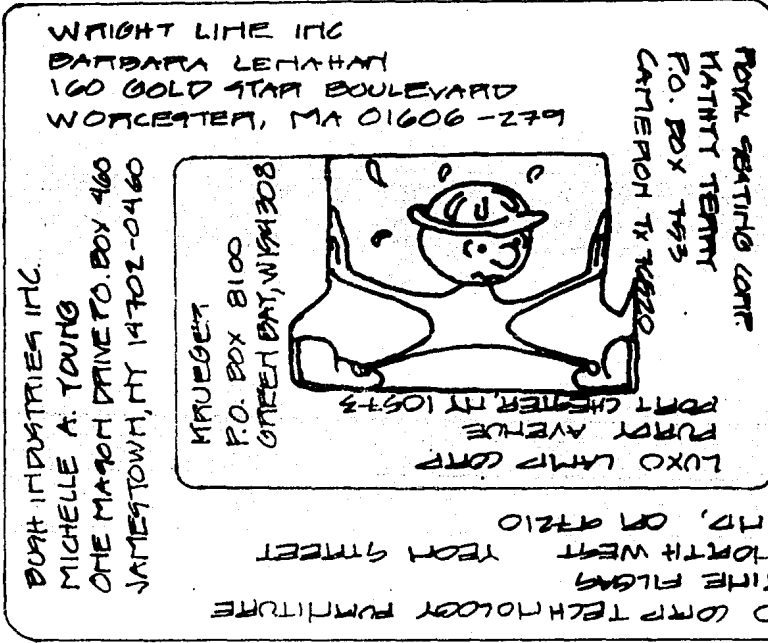 WRIGHT LINE INC
BARBARA LENAHAN
160 GOLD STAR BOULEVARD
WORCESTER, MA 01606-279
ROYAL SEATING CORP.
TERRY
P.O. BOX 753
CAMERON TX 76520
BUSH INDUSTRIES INC.
MICHELLE A. YOUNG
ONE MASON DRIVE P.O. BOX 460
JAMESTOWN, NY 14702-0460
KRUEGER
P.O. BOX 8100
GREEN BAY, WI 54308
LUXO LAMP CORP
PURDY AVENUE
PORT CHESTER, NY 10573
CORP TECHNOLOGY FURNITURE
FILGAS
NORTH WEST YEON STREET
ND, OR 97210